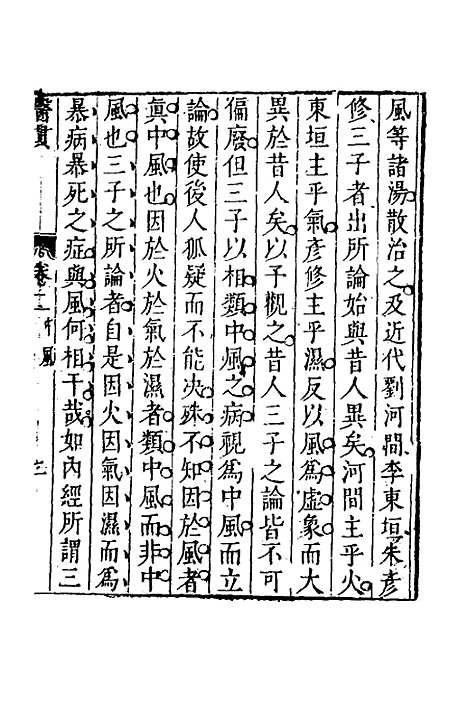 風等諸湯散治之及近代劉河間李東垣朱彥
修三子者出所論始與昔人異矣河間主乎火
東垣主乎氣彥修主乎濕反以風為虛象而大
異於昔人矣以予觀之昔人三子之論皆不可
偏廢但三子以相類中風之病視爲中風而立
論故使後人狐疑而不能决殊不知因於風者
眞中風也因於火於氣於濕者類中風而非中
風也三子之所論者自是因火因氣因濕而爲
暴病暴死之症與風何相干哉如内經所謂三
醫貫
卷之二 中風